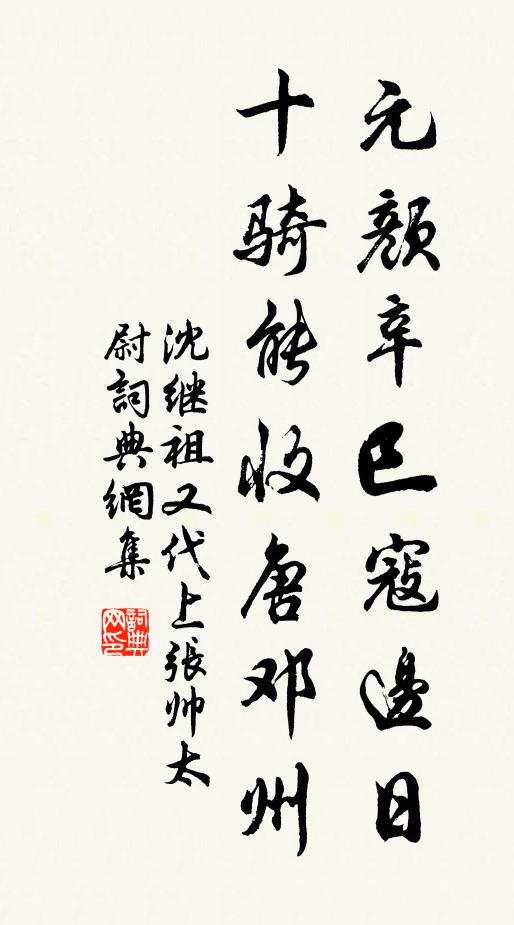 元颜辛巳寇邊日
十骑能收唐邓州
沈继祖又代上張帅太
尉詞典網集
詞典
网印